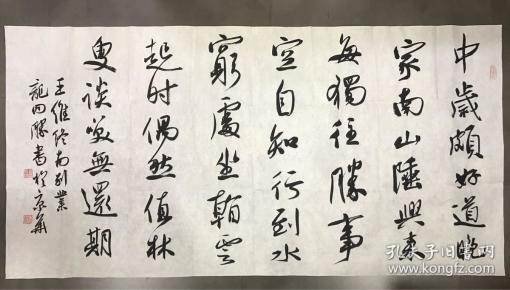 中歲頗好道晚
家南山陲興來
每獨往勝事
空自知行到水
窮處坐看雲
起时偶然值林
叟談笑無還期
王維終南別業
龍四勝書於京華
孔夫子旧书网
www.kongfz.com